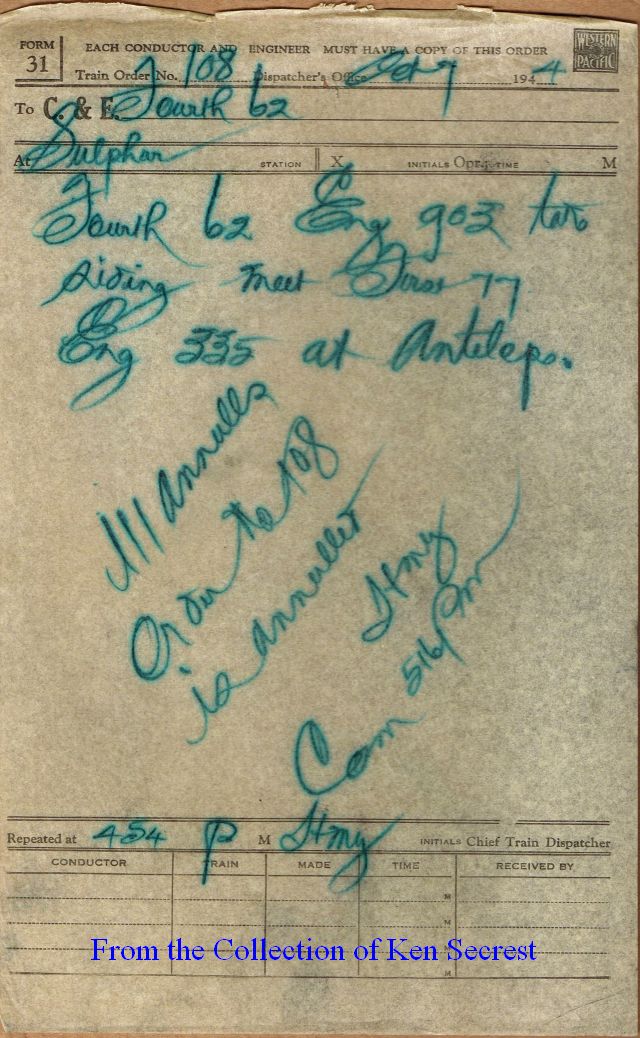 FORM 31
EACH CONDUCTOR AND ENGINEER MUST HAVE A COPY OF THIS ORDER
WESTERN PACIFIC
Train Order No. 108 Dispatcher's Office 7 1944
To C. & E. Fourth 62
At Sulphar STATION X INITIALS Opr. TIME M
Fourth 62 Eng 903 take
siding meet First 77
Eng 335 at Antelope.
111 Annulls
Order No 108
is annulled
Hmy
Com 516 Pm
Repeated at 454 P M Hmy INITIALS Chief Train Dispatcher
CONDUCTOR TRAIN MADE TIME RECEIVED BY
M
M
M
M
From the Collection of Ken Secrest